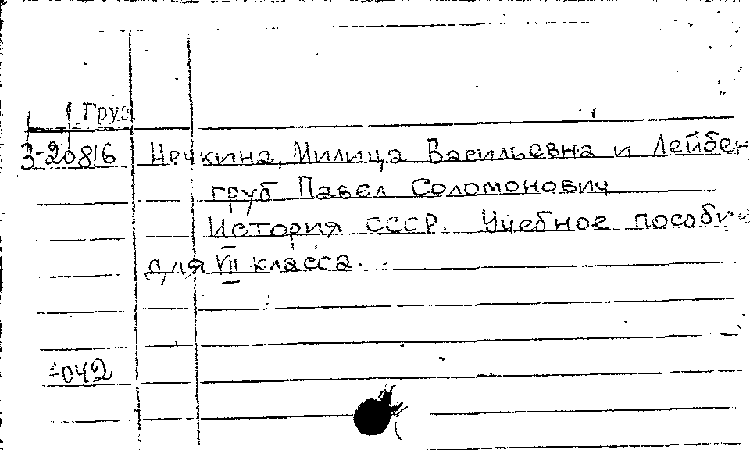 Груз
3-20816 Нечкина, Милица Васильевна и Лейбен
груб Павел Соломонович
История СССР. Учебное пособие
для VII класса.
-042